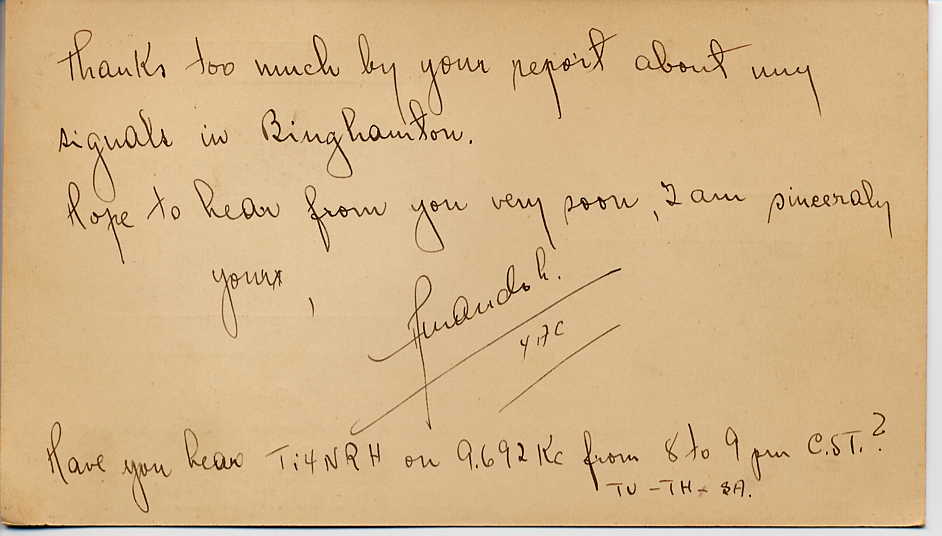 Thanks too much by your report about my
signals in Binghamton.
Hope to hear from you very soon, I am sinceraly
yours,
Have you hear Ti4NRH on 9.692 Kc from 8 to 9 pm C.ST.?
TU - TH - SA.